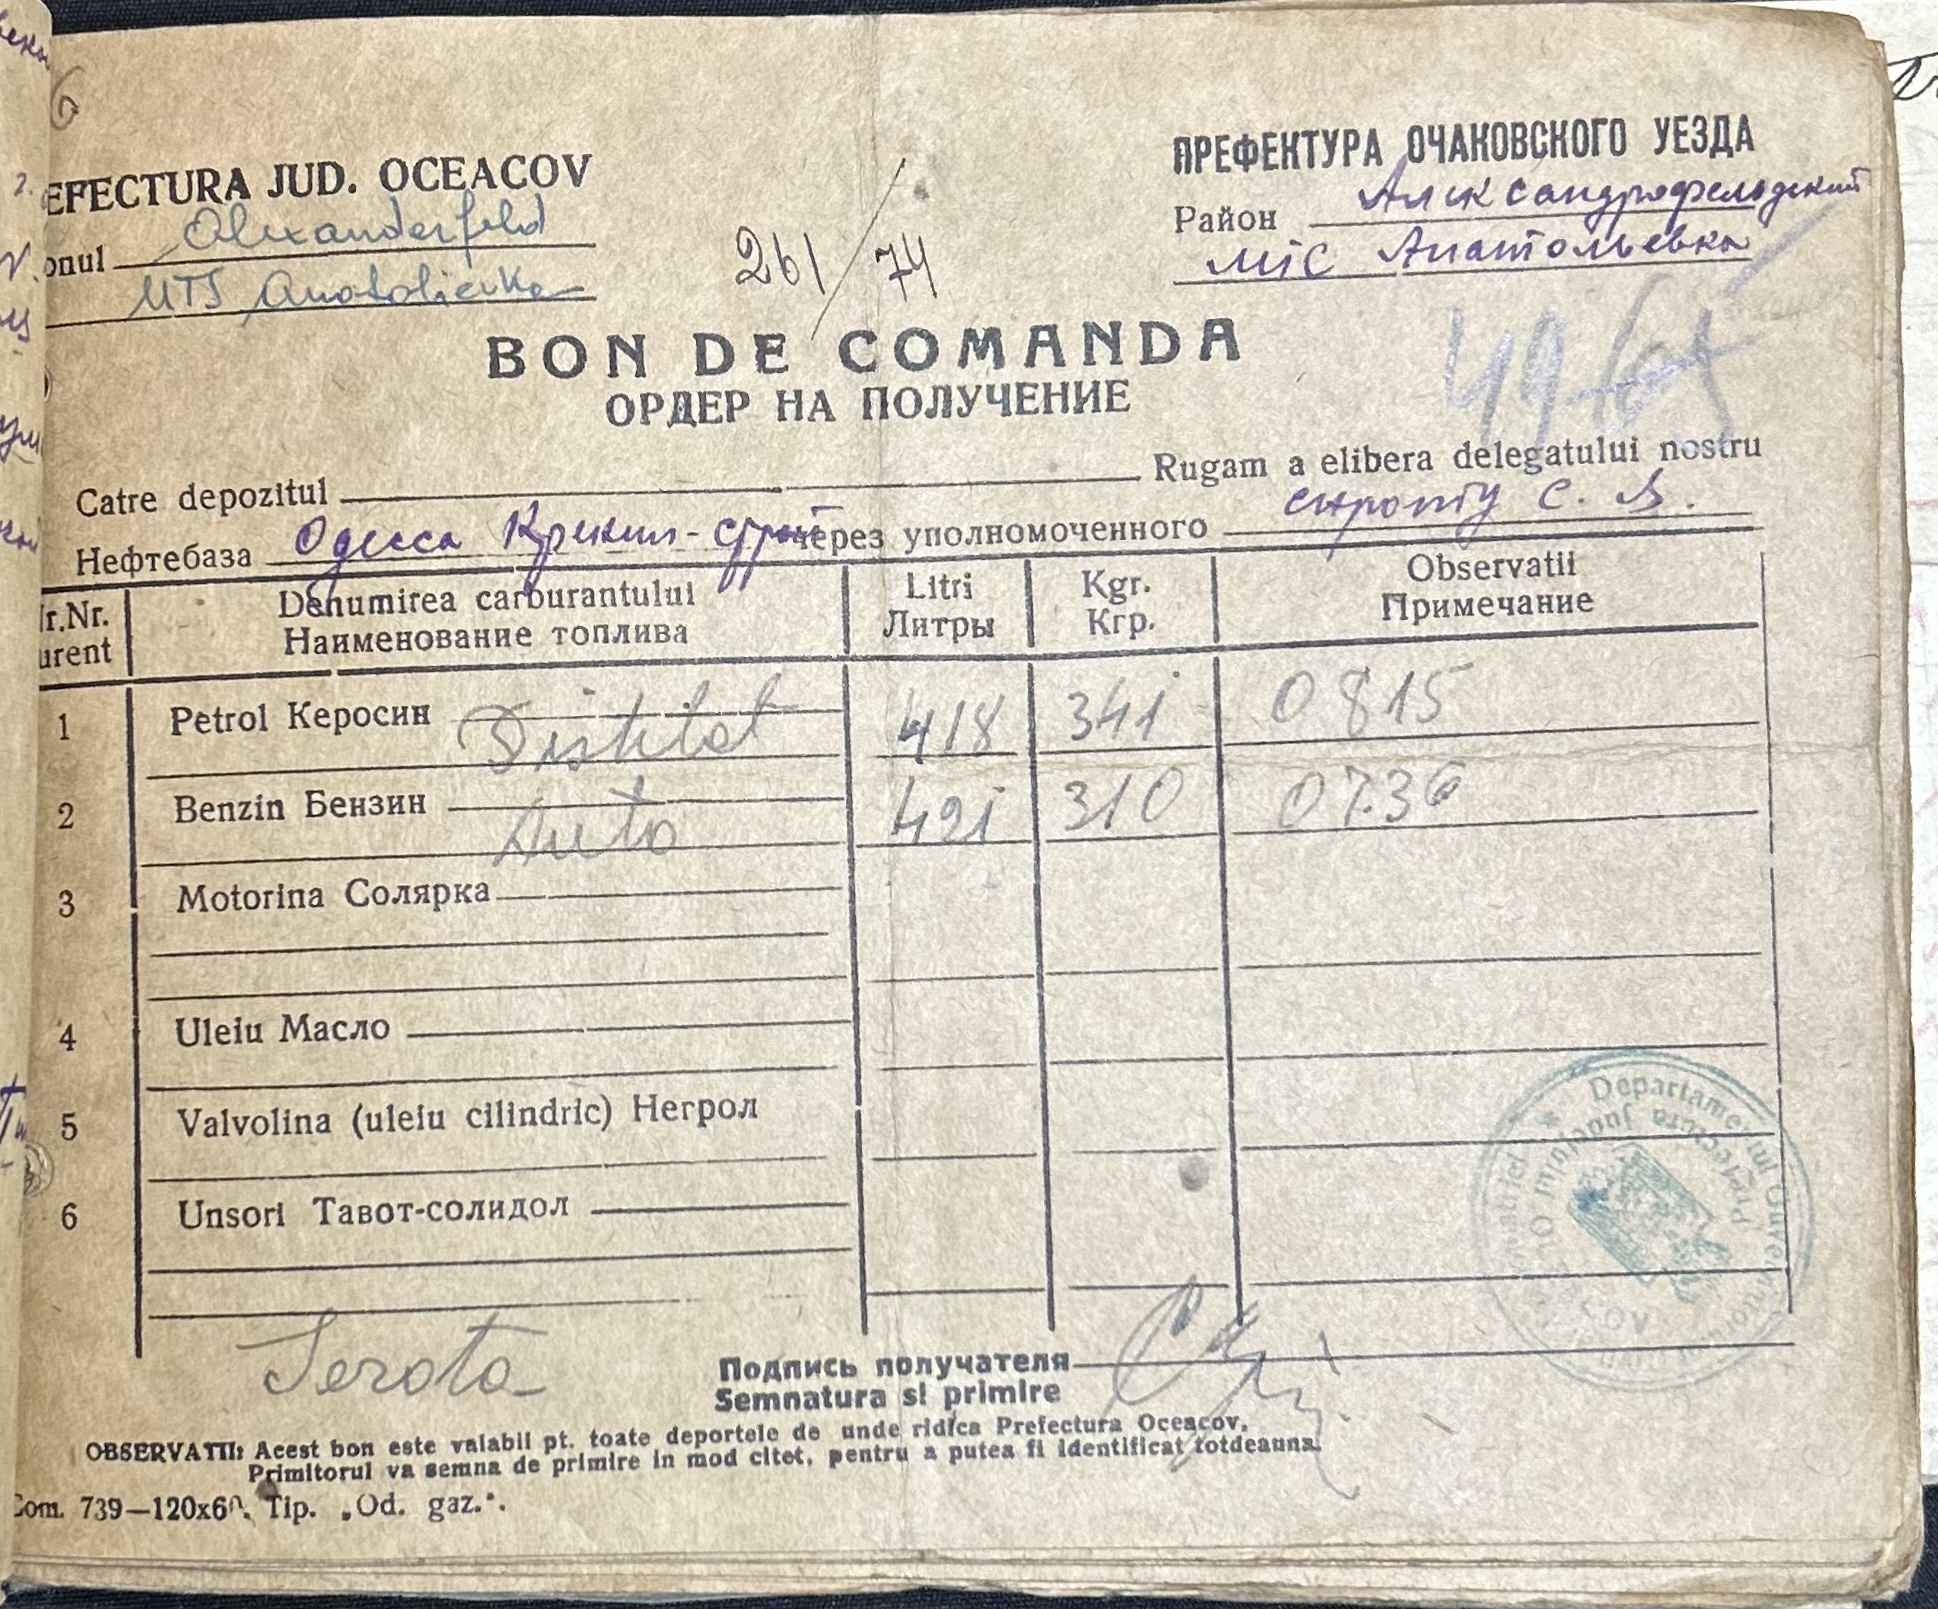 6
EFECTURA JUD. OCEACOV
onul Alexanderfeld
MTS Anatolievka
261/74
ПРЕФЕКТУРА ОЧАКОВСКОГО УЕЗДА
Район Александрофельдский
МТС Анатольевка
BON DE COMANDA
ОРДЕР НА ПОЛУЧЕНИЕ
Catre depozitul Rugam a elibera delegatului nostru
Нефтебаза Одесса Крекин-строй через уполномоченного С. В.
r.Nr. urent
Denumirea carburantului
Наименование топлива
Litri
Литры
Kgr.
Кгр.
Observatii
Примечание
1 Petrol Керосин Distilat 418 341 0815
2 Benzin Бензин Auto 421 310 0736
3 Motorina Солярка
4 Uleiu Масло
5 Valvolina (uleiu cilindric) Негрол
6 Unsori Тавот-солидол
Departamentul Guvernământul
Prefectura Județului O
COV
Serota
Подпись получателя
Semnatura si primire
OBSERVATII: Acest bon este valabil pt. toate deportele de unde ridica Prefectura Oceacov,
Primitorul va semna de primire in mod citet, pentru a putea fi identificat totdeauna.
Com. 739—120x60. Tip. „Od. gaz.".